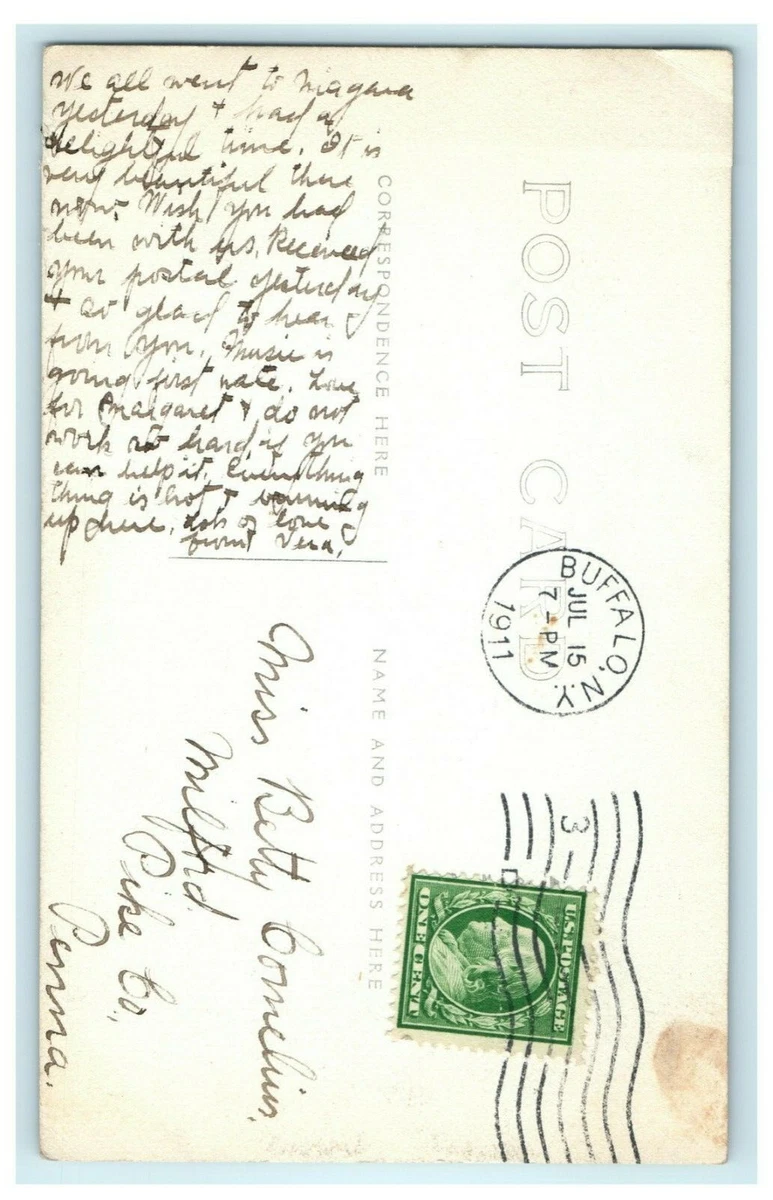 We all went to Niagara
yesterday & had a
delightful time. It is
very beautiful there
now. Wish you had
been with us. Received
your postal yesterday
& so glad to hear
from you. Music is
going first rate. Love
for Margaret & do not
work so hard if you
can help it. Everything
thing is hot & burning
up here. Lots of love
from Vera.
CORRESPONDENCE HERE
POST CARD
BUFFALO, N.Y.
JUL 15
7-PM
1911
3
U.S. POSTAGE
ONE CENT
NAME AND ADDRESS HERE
Miss Betty Cornelius,
Milford
Pike Co.,
Penna.